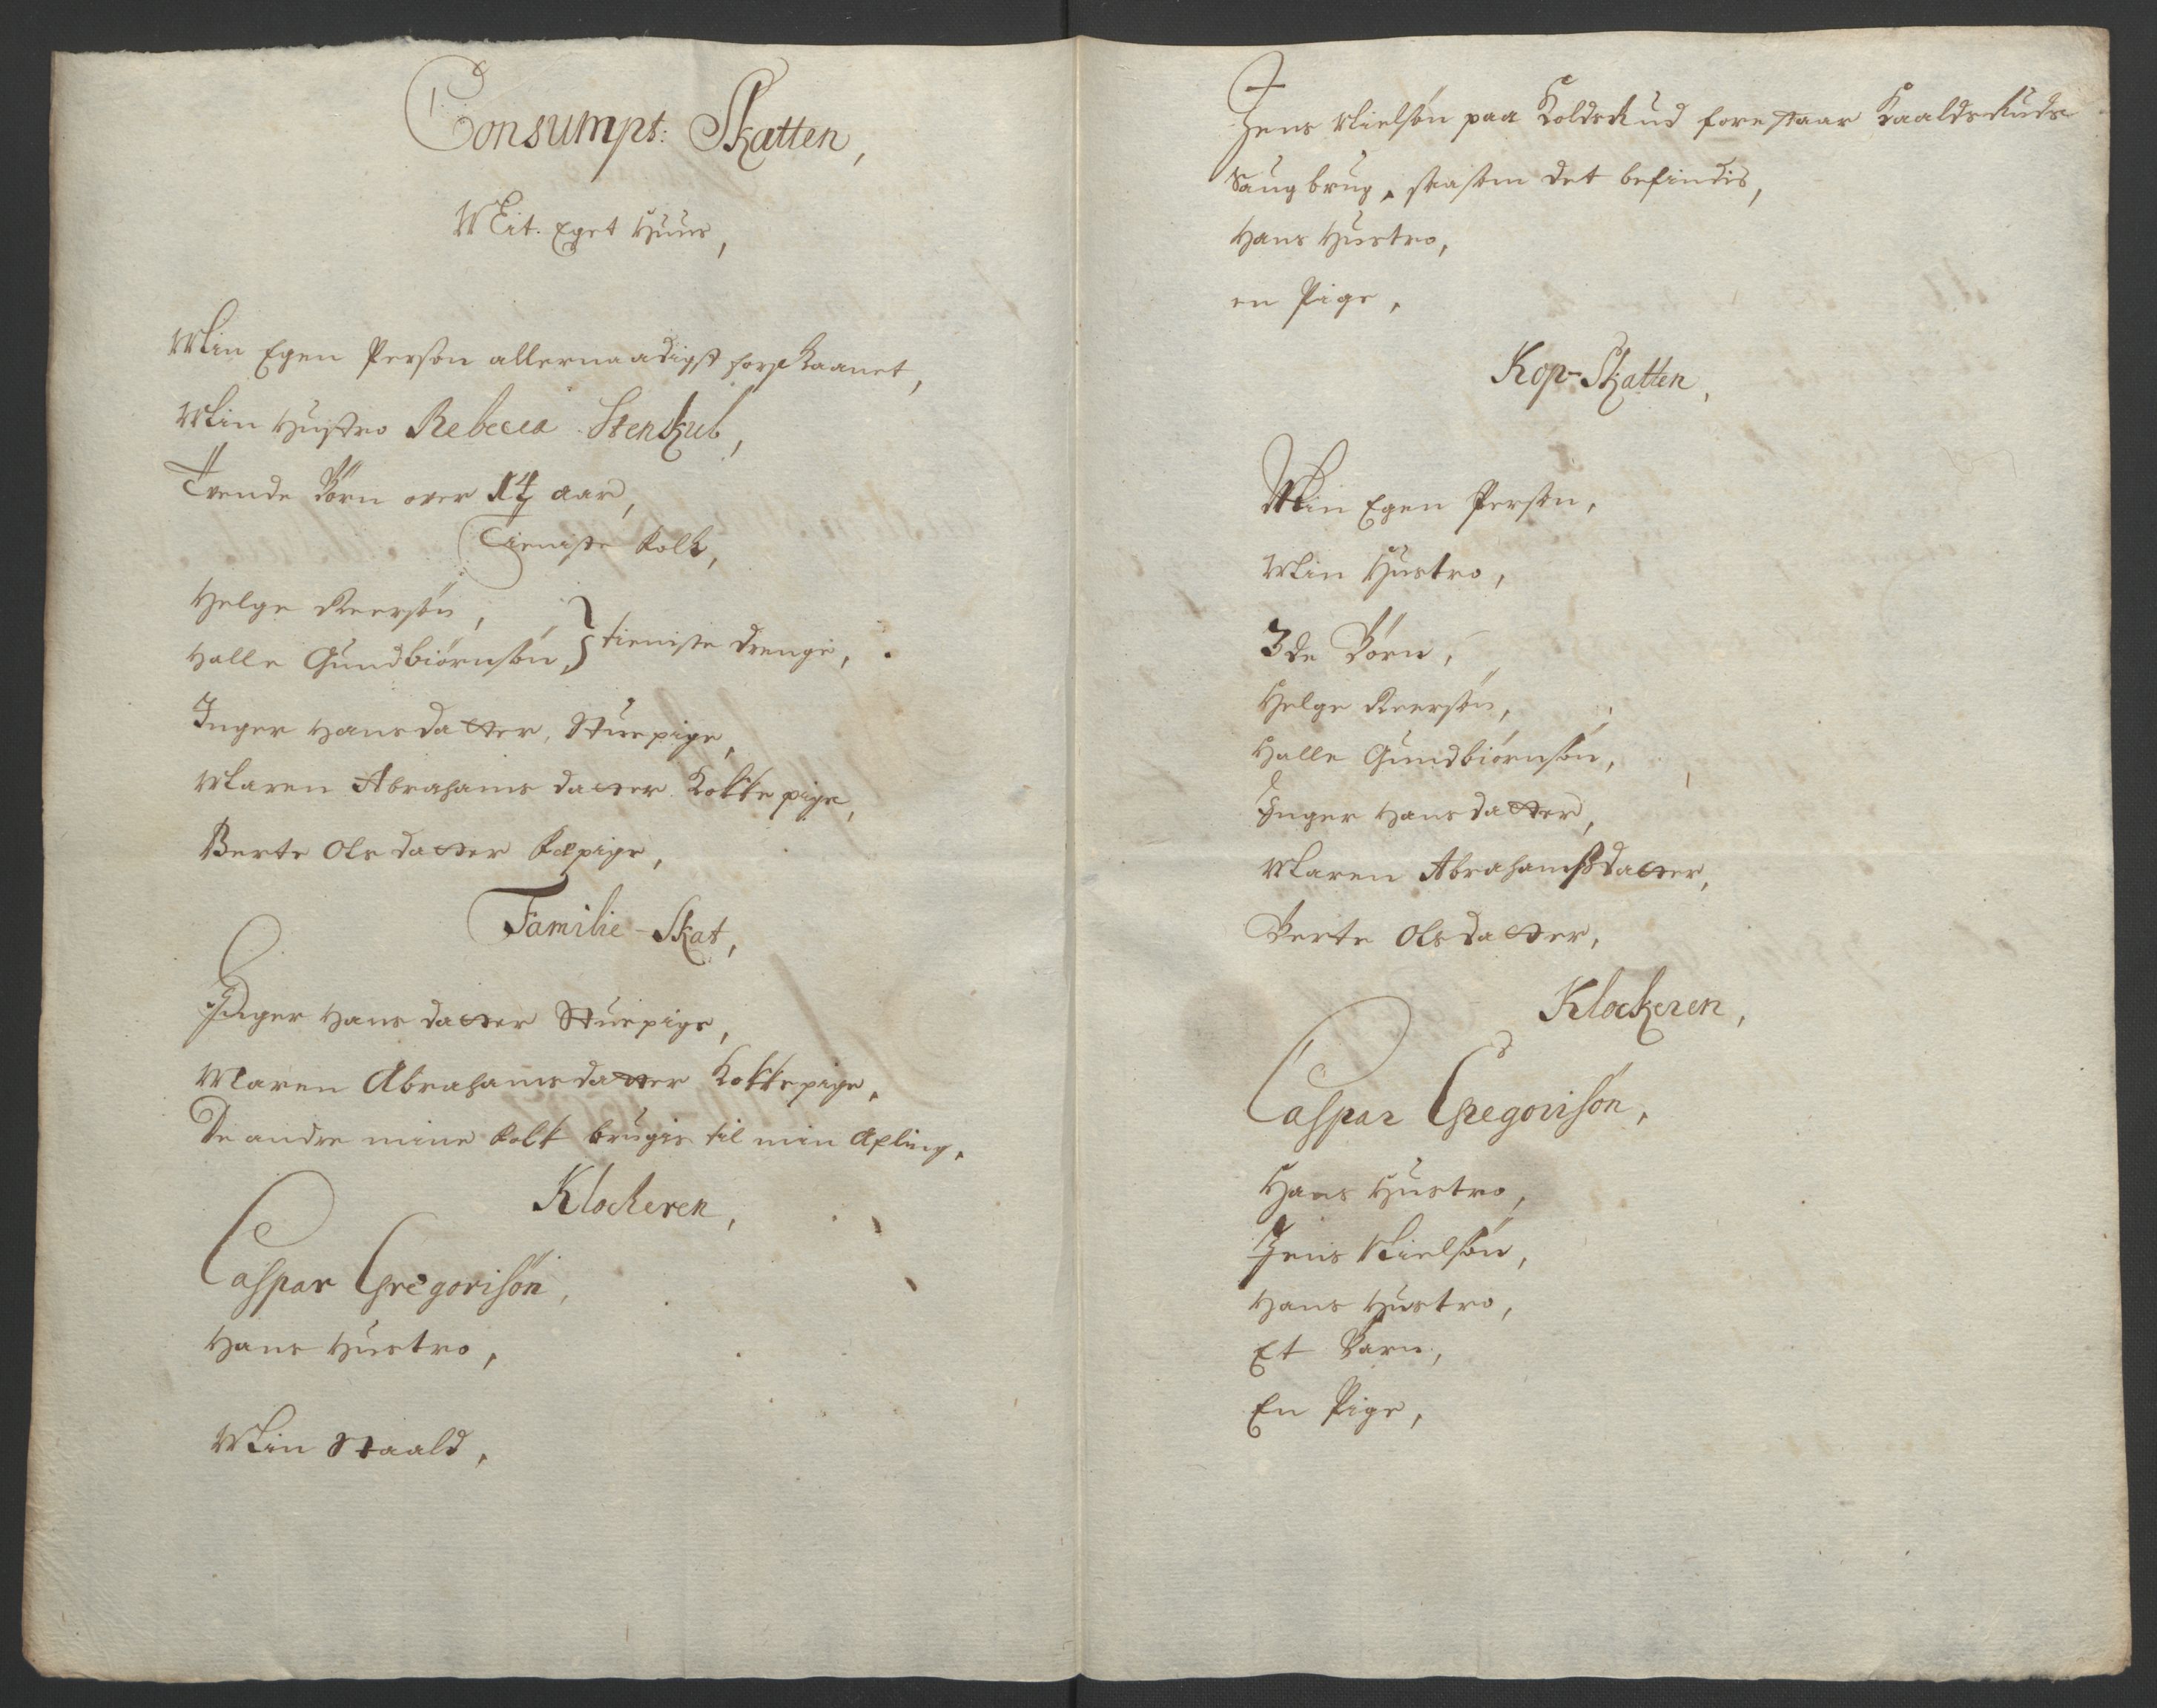 Consumpt: Skatten,
Mit. Eget Huus,
Min Egen Person allernaadigst forskaanet,
Min Hustro Rebecca Stenkul,
Tvende Börn over 14 aar,
Tieniste folk,
Helge Reersön,
Halle Gundbiörnsön } tieniste drenge,
Inger Hansdatter, Stuepige,
Maren Abrahams datter Kokke pige,
Berte Olsdatter fæpige,
Familie-Skat,
Inger Hansdatter Stuepige,
Maren Abrahamsdatter Kokkepige,
De andre mine folk brugis til min Afling,
Klockeren,
Caspar Gregorisön,
Hans Hustro,
Min Staald,
Jens Nielsön paa Koldsrud forestaar Kaaldsruds
Saugbrug, saasom det befindis,
Hans Hustro,
en Pige,
Kop-Skatten,
Min Egen Persön,
Min Hustro,
3de Börn,
Helge Reersön,
Halle Gundbiörnsön,
Inger Hansdatter,
Maren Abrahamsdatter,
Berte Olsdatter,
Klockeren,
Caspar Gregorisön,
Hans Hustro,
Jens Nielsön,
Hans Hustro,
Et Barn,
En Pige,